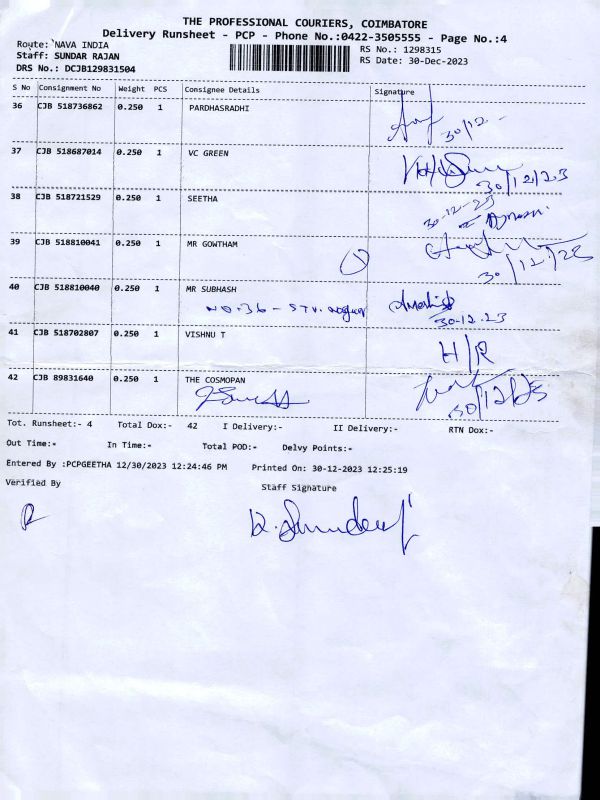 THE PROFESSIONAL COURIERS, COIMBATORE
Delivery Runsheet - PCP - Phone No.:0422-3505555 - Page No.:4
Route: NAVA INDIA
RS No.: 1298315
Staff: SUNDAR RAJAN
RS Date: 30-Dec-2023
DRS No.: DCJB129831504
S No Consignment No Weight PCS Consignee Details Signature
36 CJB 518736862 0.250 1 PARDHASRADHI
30/12
37 CJB 518687014 0.250 1 VC GREEN
30/12/23
38 CJB 518721529 0.250 1 SEETHA
30-12-23
39 CJB 518810041 0.250 1 MR GOWTHAM
30/12/23
40 CJB 518810040 0.250 1 MR SUBHASH
NO:36 -
30-12.23
41 CJB 518702807 0.250 1 VISHNU T
H/R
42 CJB 89831640 0.250 1 THE COSMOPAN
30/12/23
Tot. Runsheet:- 4 Total Dox:- 42 I Delivery:- II Delivery:- RTN Dox:-
Out Time:- In Time:- Total POD:- Delvy Points:-
Entered By :PCPGEETHA 12/30/2023 12:24:46 PM Printed On: 30-12-2023 12:25:19
Verified By Staff Signature